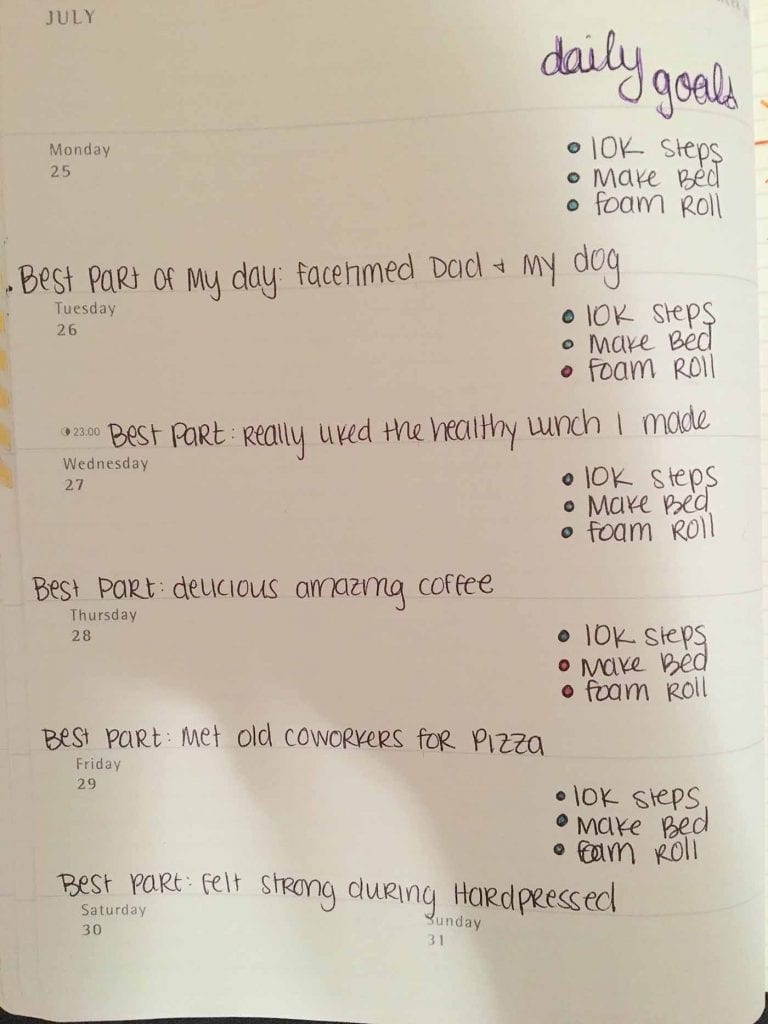 JULY
daily
goals
Monday
25
• 10K Steps
• Make Bed
• foam Roll
Best part of my day: facetimed Dad + my dog
Tuesday
26
• 10K Steps
• Make Bed
• foam Roll
23:00 Best part: Really liked the healthy lunch I made
Wednesday
27
• 10K Steps
• Make Bed
• foam Roll
Best part: delicious amazing coffee
Thursday
28
• 10K Steps
• Make Bed
• foam Roll
Best part: Met old coworkers for pizza
Friday
29
• 10K Steps
• Make Bed
• foam Roll
Best part: felt strong during Hardpressed
Saturday
30
Sunday
31